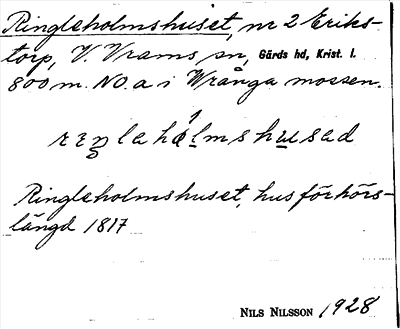 Ringleholmshuset, nr 2 Eriks-
torp, V. Vrams sn, Gärds hd, Krist. l.
800 m. NO. a i Wrånga mossen.
Ringleholmshuset, hus förhörs-
längd 1817
NILS NILSSON 1928